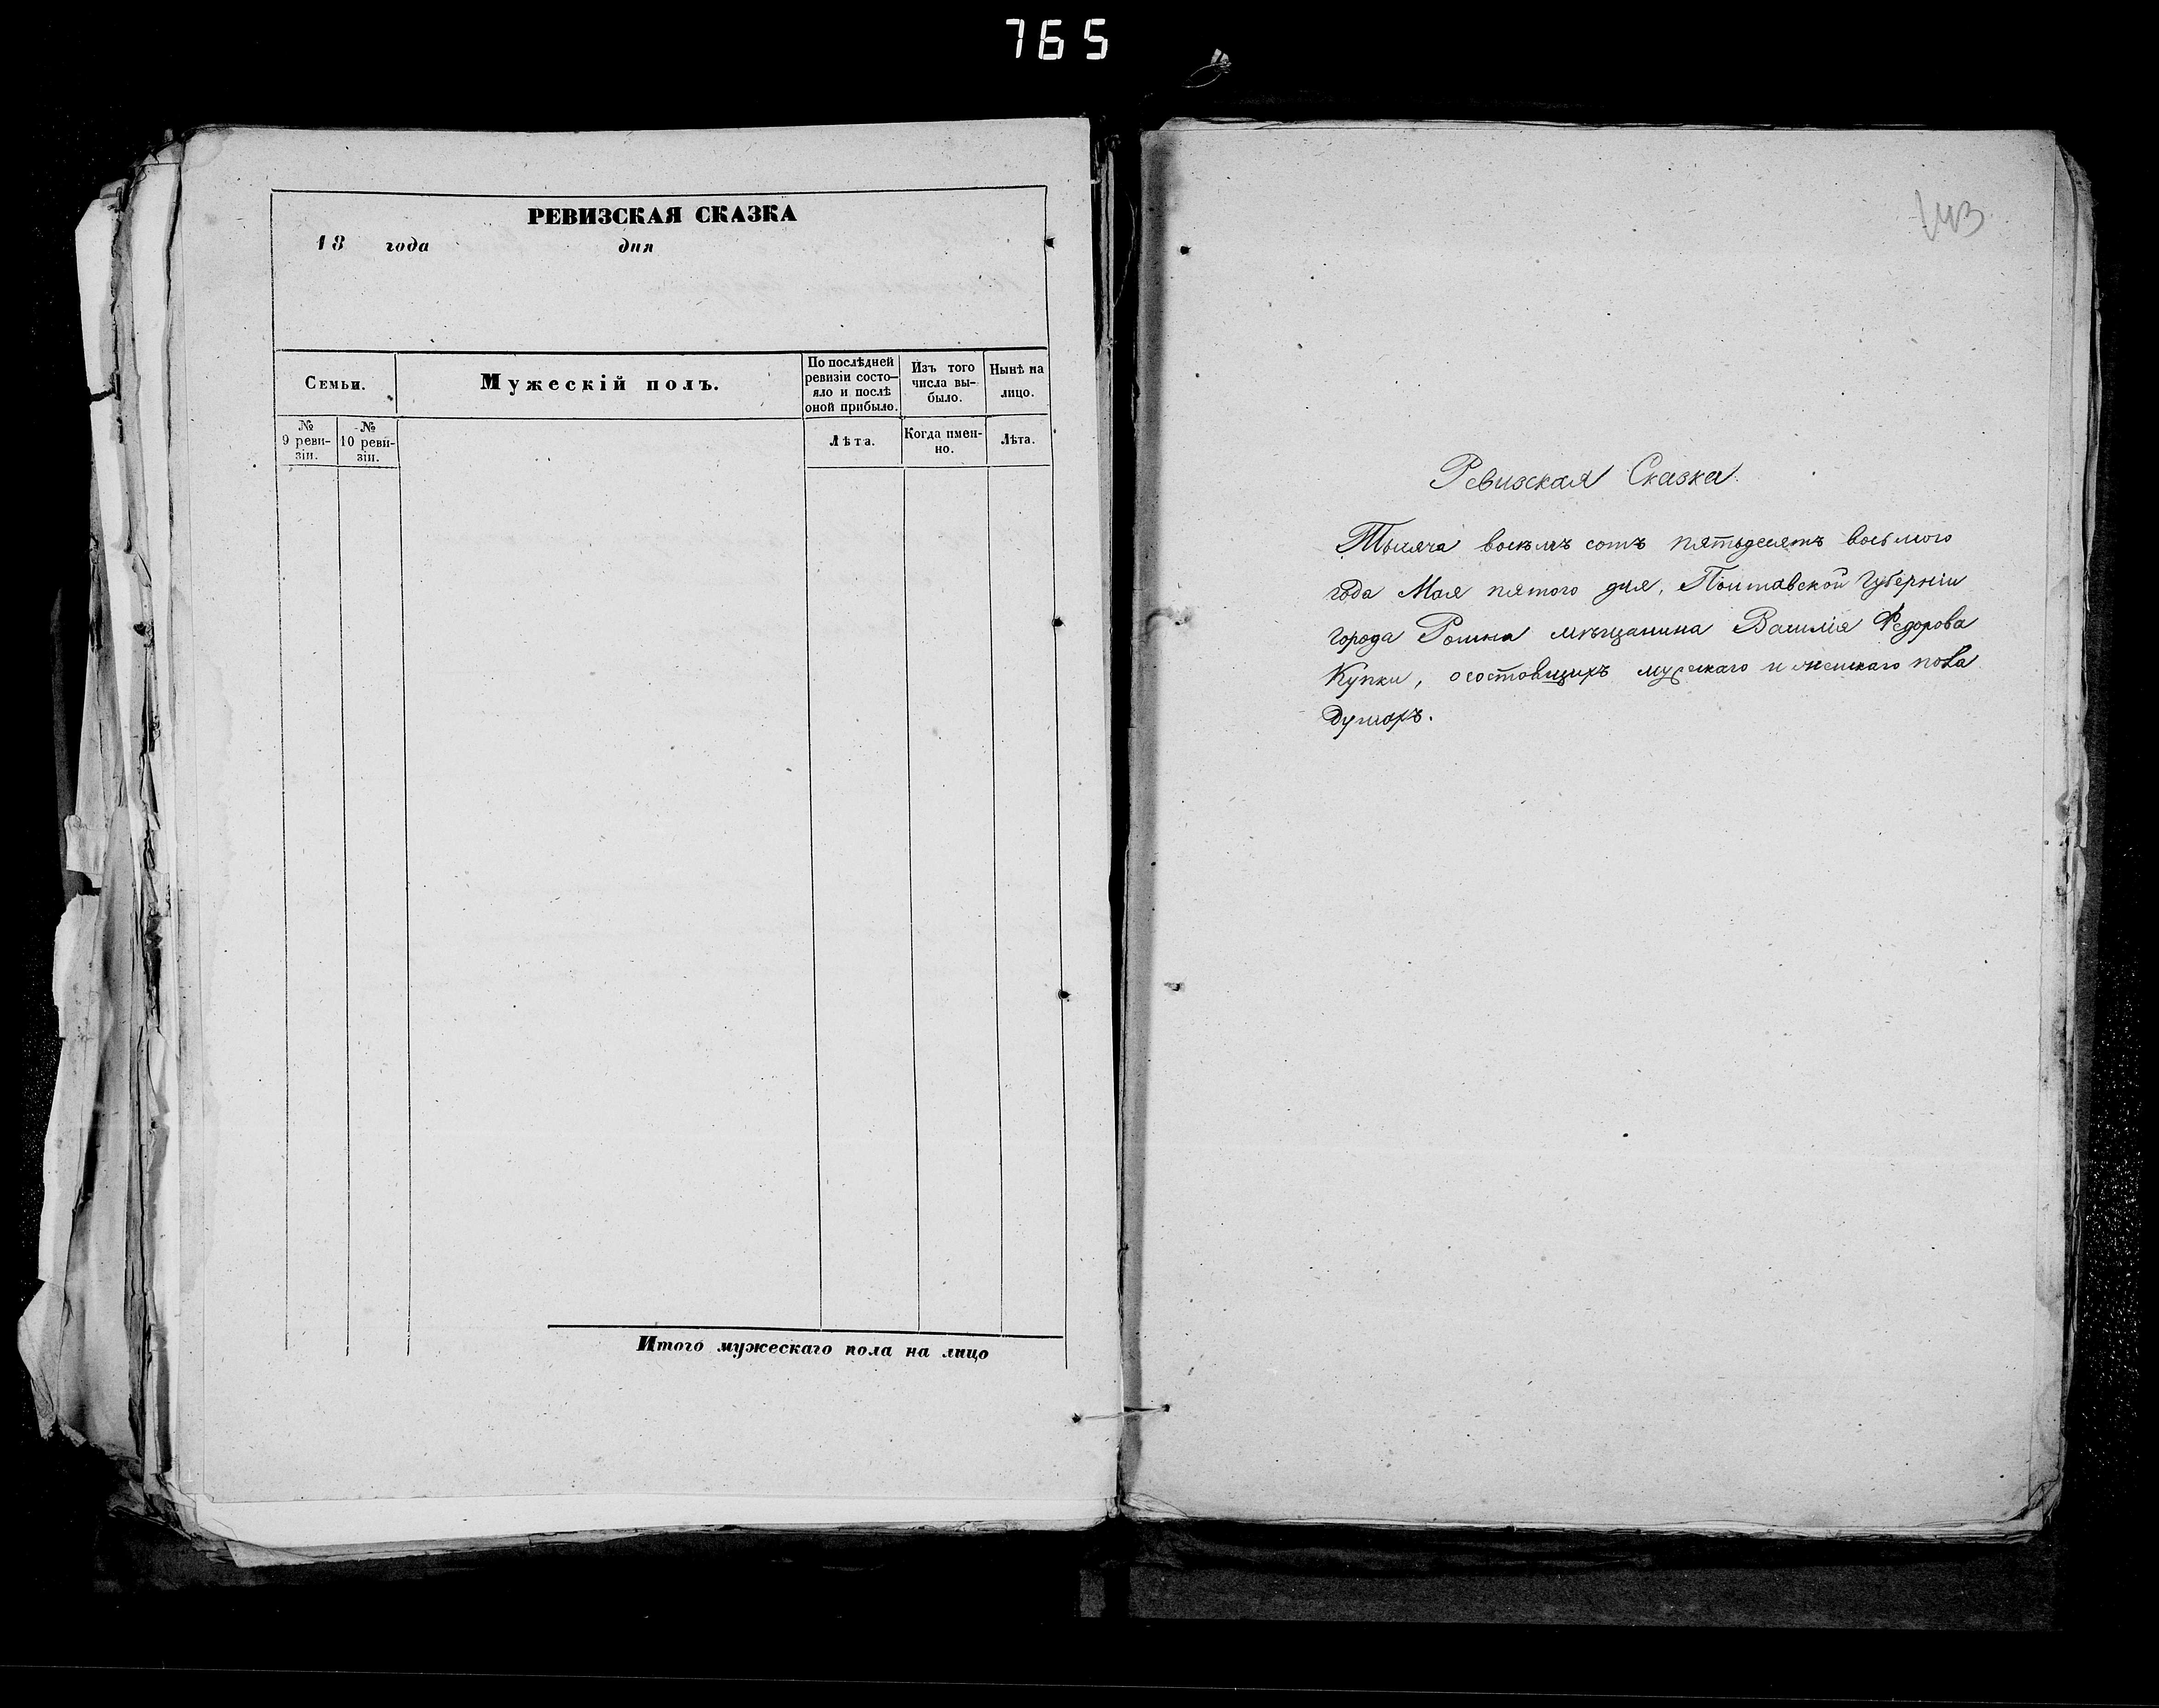 765
РЕВИЗСКАЯ СКАЗКА
18 года дня
Семьи.
Мужескій полъ.
По послѣдней
ревизіи состо-
яло и послѣ
оной прибыло.
Изъ того
числа вы-
было.
Нынѣ на
лицо.
№
9 реви-
зіи.
№
10 реви-
зіи.
Лѣта.
Когда имен-
но.
Лѣта.
Итого мужескаго пола на лицо
143
Ревизская Сказка.
Тысяча восемъ сотъ пятьдесятъ восьмого
года Мая пятого дня, Полтавской Губерніи
города Ромна мѣщанина Василія Федорова
Купки, о состоящихъ мужескаго и женскаго пола
душахъ.